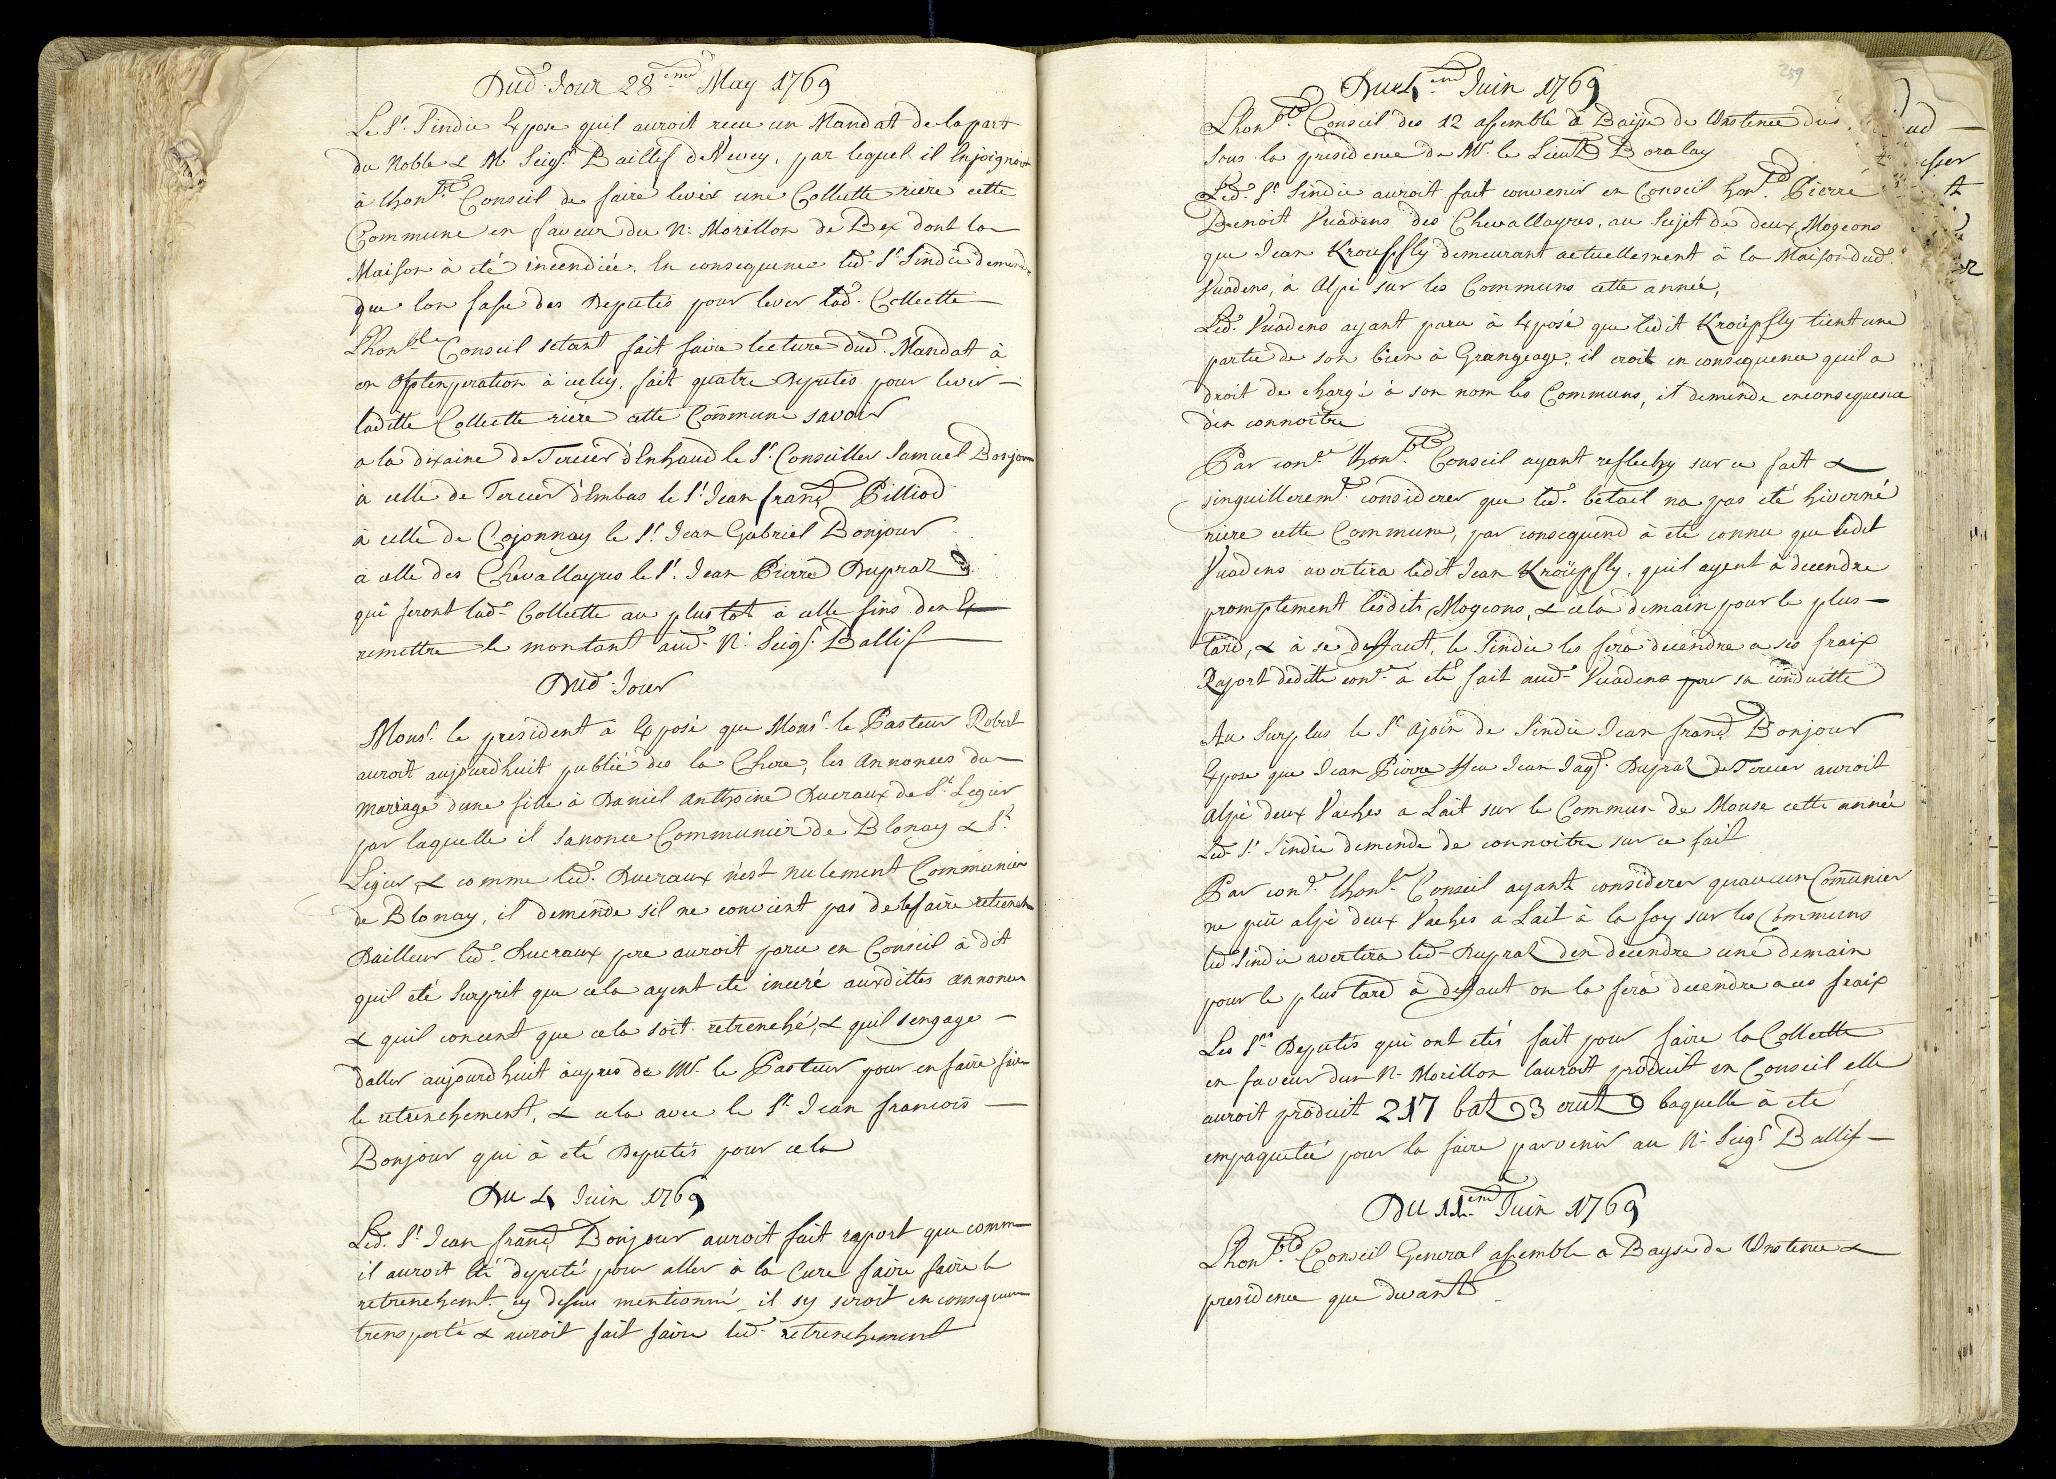 Dud. Jour 28eme May 1769
Le Sr. Sindic Expose quil auroit receu un Mandat de la part
du Noble & M. Seigr. Baillif de Vevey, par lequel il Enjoignoit
à Lhonble. Conseil de faire lever une Collecte riere cette
Commune en faveur du N: Morillon de Bex dont la
Maison à eté incendiée. En consequence led. Sr. Sindic demende
que lon fasse des Deputés pour lever lad. Collecte
Lhonble Conseil setant fait faire lecture dud. Mandat à
en Obtenperation à iceluy, fait quatre Deputés pour lever
laditte Collecte riere cette Commune savoir
a la dixaine de Tercier d'Enhaud le Sr. Conseiller Samuel Bonjour
à celle de Tercier d'Embas le Sr. Jean franç Pilliod
à celle de Cojonnay le Sr. Jean Gabriel Bonjour
à celle des Chevallayres le Sr. Jean Pierre Dupraz
qui feront lad. Collecte au plustot à celle fins den
remettre le montant aud. N: Seigr. Ballif
Dud. Jour
Monsr. le president a Exposé que Monsr. le Pasteur Robert
auroit aujourdhuit publié des la Chire, les Annonces du
mariage dune fille à Daniel Anthoine Ducraux de St. Legier
par laquelle il sanonce Communier de Blonay & St.
Legier, & comme led. Ducraux n'est nulement Communier
de Blonay, il demende sil ne convient pas de le faire retrench
Dailleur led. Ducraux pere auroit paru en Conseil à dit
quil eté surprit que cela ayent eté inceré auxdittes annonces
& quil concent que cela soit retrenché, & quil s'engage
d'aller aujourdhuit àupres de Mr. le Pasteur pour en faire faire
le retrenchement, & cela avec le Sr. Jean francois
Bonjour qui à eté Deputés pour cela
Du 4 Juin 1769
Led. Sr. Jean franç Bonjour auroit fait raport que comme
il auroit Eté deputé pour aller à la Cure faire faire le
retrenchemt. cy dessus mentionné, il sy seroit en consequence
transporté & auroit fait faire led. retrenchement
259
Du 4eme Juin 1769
Lhonble. Conseil des 12 assemble à Bayse de Unstence dud
sous la presidence de Mr. le Lieut Boralay
Led. Sr. Sindic auroit fait convenir en Conseil hon. Pierre
Benoit Vuadens des Chevallayres, au sujet de deux Mogeons
que Jean Kroupfly demeurant actuellement à la Maison dud.
Vuadens, à Alpé sur les Communs cette année,
Led. Vuadens ayant paru à Exposé que ledit Kroüpfly tient une
partie de son bien à Grangeage, il croit en consequence quil a
droit de chargé à son nom les Communs, et demende enconsequence
d'en connoitre
Par conce. Lhonble. Conseil ayant reflechy sur ce fait &
singuilleremt. considerer que led. betail na pas eté hiverné
riere cette Commune, par consequend à eté connu que ledit
Vuadens avertira ledit Jean Kroüpfly, quil ayent à decendre
promptement lesdits Mogeons, & cela demain pour le plus
tard, & à se deffaut, le Sindic les fera decendre a ses fraix
Raport deditte conce. a eté fait aud. Vuadens pour sa conduitte
Au Surplus le Sr. ajoin de Sindic Jean franç Bonjour
Expose que Jean Pierre ffeu Jean Jaqs. Dupraz de Tercier auroit
Alpé deux Vaches a Lait sur le Commun de Mousse cette année
Led. Sr. Sindic demende de connoitre sur ce fait
Par conce. Lhonle. Conseil ayant considerer quaucun Comunier
ne peu alpé deux Vaches a Lait à la foy sur les Communs
led. Sindic avertira led. Dupraz den decendre une demain
pour le plus tard à deffaut on la fera decendre a ces fraix
Les Srs. Deputés qui ont etés fait pour faire la Collecte
en faveur dun N. Morillon lauroit produit en Conseil elle
auroit produit 217 batz 3 crutz laquelle à eté
empaquetée pour la faire parvenir au N: Seigr Ballif
Du 11eme Juin 1769
Lhonble. Conseil General assemble a Bayse de Unstence &
presidence que devant